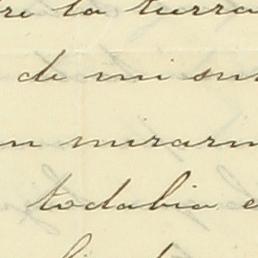 re la tierra
de mi su
n mirarm
todabia e